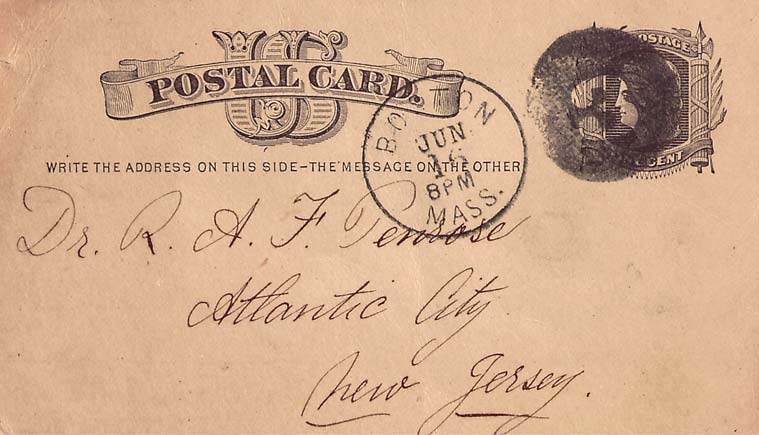 US
POSTAL CARD.
WRITE THE ADDRESS ON THIS SIDE-THE MESSAGE ON THE OTHER
BOSTON
JUN
8PM
MASS.
POSTAGE
CENT
Dr. R. A. F. Penrose
Atlantic City
New Jersey.